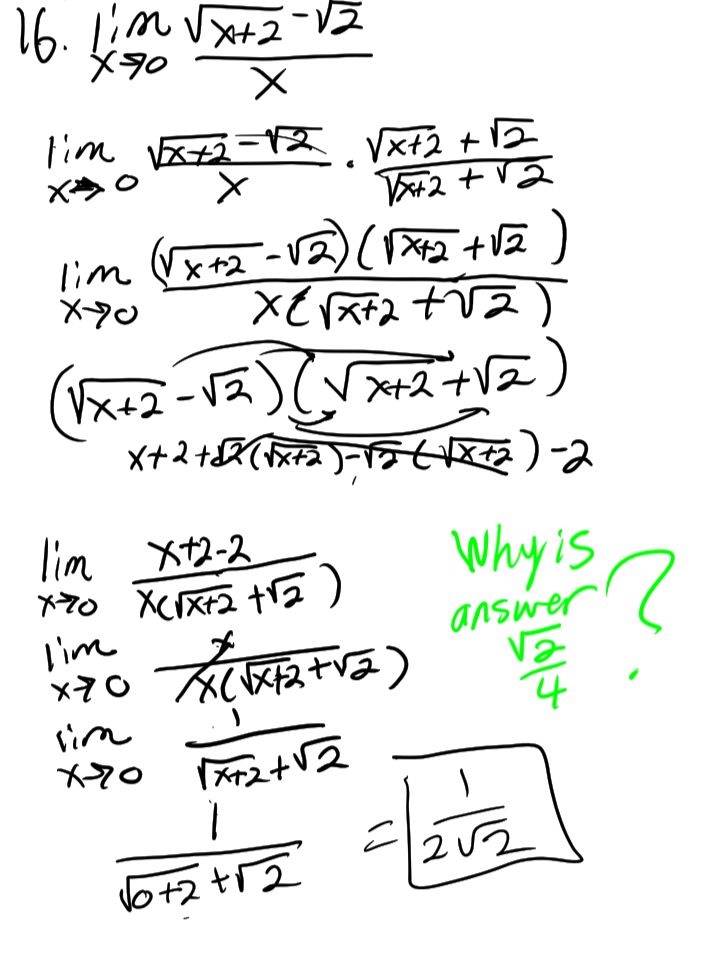 16. lim x→0 (√(x+2) - √2)/x
lim x→0 (√(x+2) - √2)/x · (√(x+2) + √2)/(√(x+2) + √2)
lim x→0 (√(x+2) - √2)(√(x+2) + √2)/(x(√(x+2) + √2))
(√(x+2) - √2)(√(x+2) + √2)
x+2+√2(√(x+2))-√2(√(x+2))-2
lim x→0 (x+2-2)/(x(√(x+2) + √2))
lim x→0 x/(x(√(x+2) + √2))
lim x→0 1/(√(x+2) + √2)
1/(√(0+2) + √2) = 1/(2√2)
Why is
answer
√2/4 ?